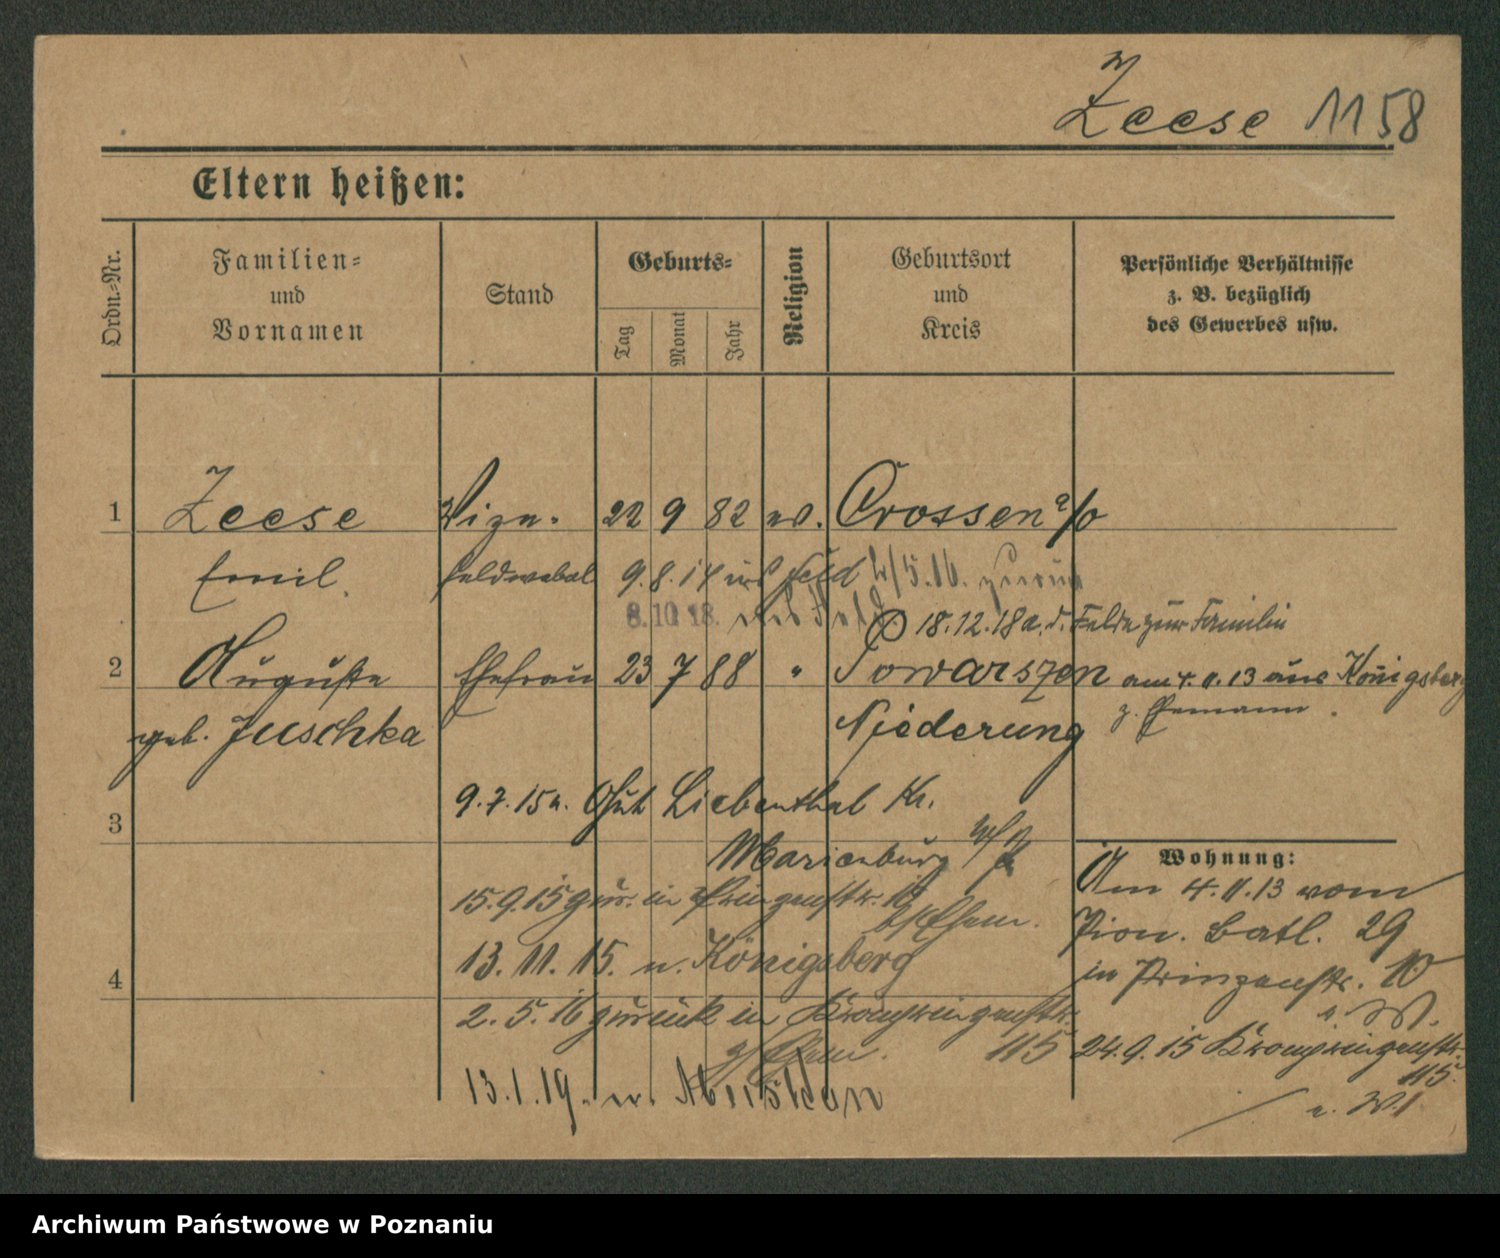 Zeese 1158
Eltern heißen:
Ordn.-Nr.
Familien-
und
Vornamen
Stand
Geburts-
Tag
Monat
Jahr
Religion
Geburtsort
und
Kreis
Persönliche Verhältnisse
z. B. bezüglich
des Gewerbes usw.
1 Zeese Vize- 22 9 82 ev. Crossen a/o
Emil feldwebel 9.8.14 ins Feld 2/5.16. zurück
8.10.18. ins Feld
18.12.18 a. d. Felde zur Familie
2 Auguste Ehefrau 23 7 88 " Towarszen am 4.11.13 aus Königsberg
z. Ehemann.
geb. Juschka Niederung
3 9.7.15 n. Gut Liebenthal Kr.
Marienburg W/P
15.9.15 zur. in Prinzenstr. 10
b/Ehem.
13.11.15. n. Königsberg
4
2.5.16 zurück in Kronprinzenstr.
z/Ehem. 115
13.1.19. n.
Wohnung:
Am 4.11.13 vom
Pion. Batl. 29
in Prinzenstr. 10
e. W.
24.9.15 Kronprinzenstr.
115.
e. W.
Archiwum Państwowe w Poznaniu